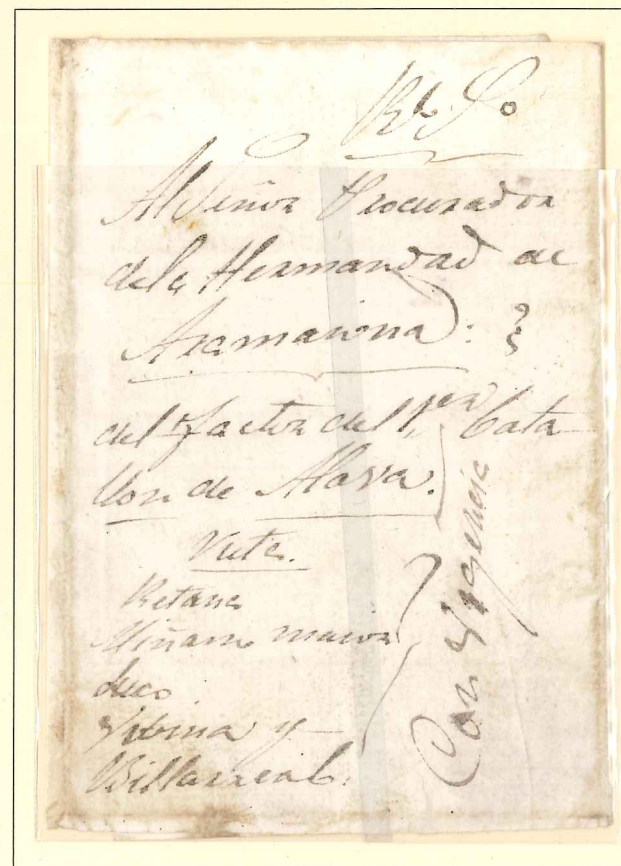 Rl. So
Al Señor Procurador
dela Hermandad de
Aramaiona:
del factor del 1er Bata
llon de Alava.
Vute.
Retana
Miñano maior
Luco
Urbina y
Billarreal.
Con Urgencia